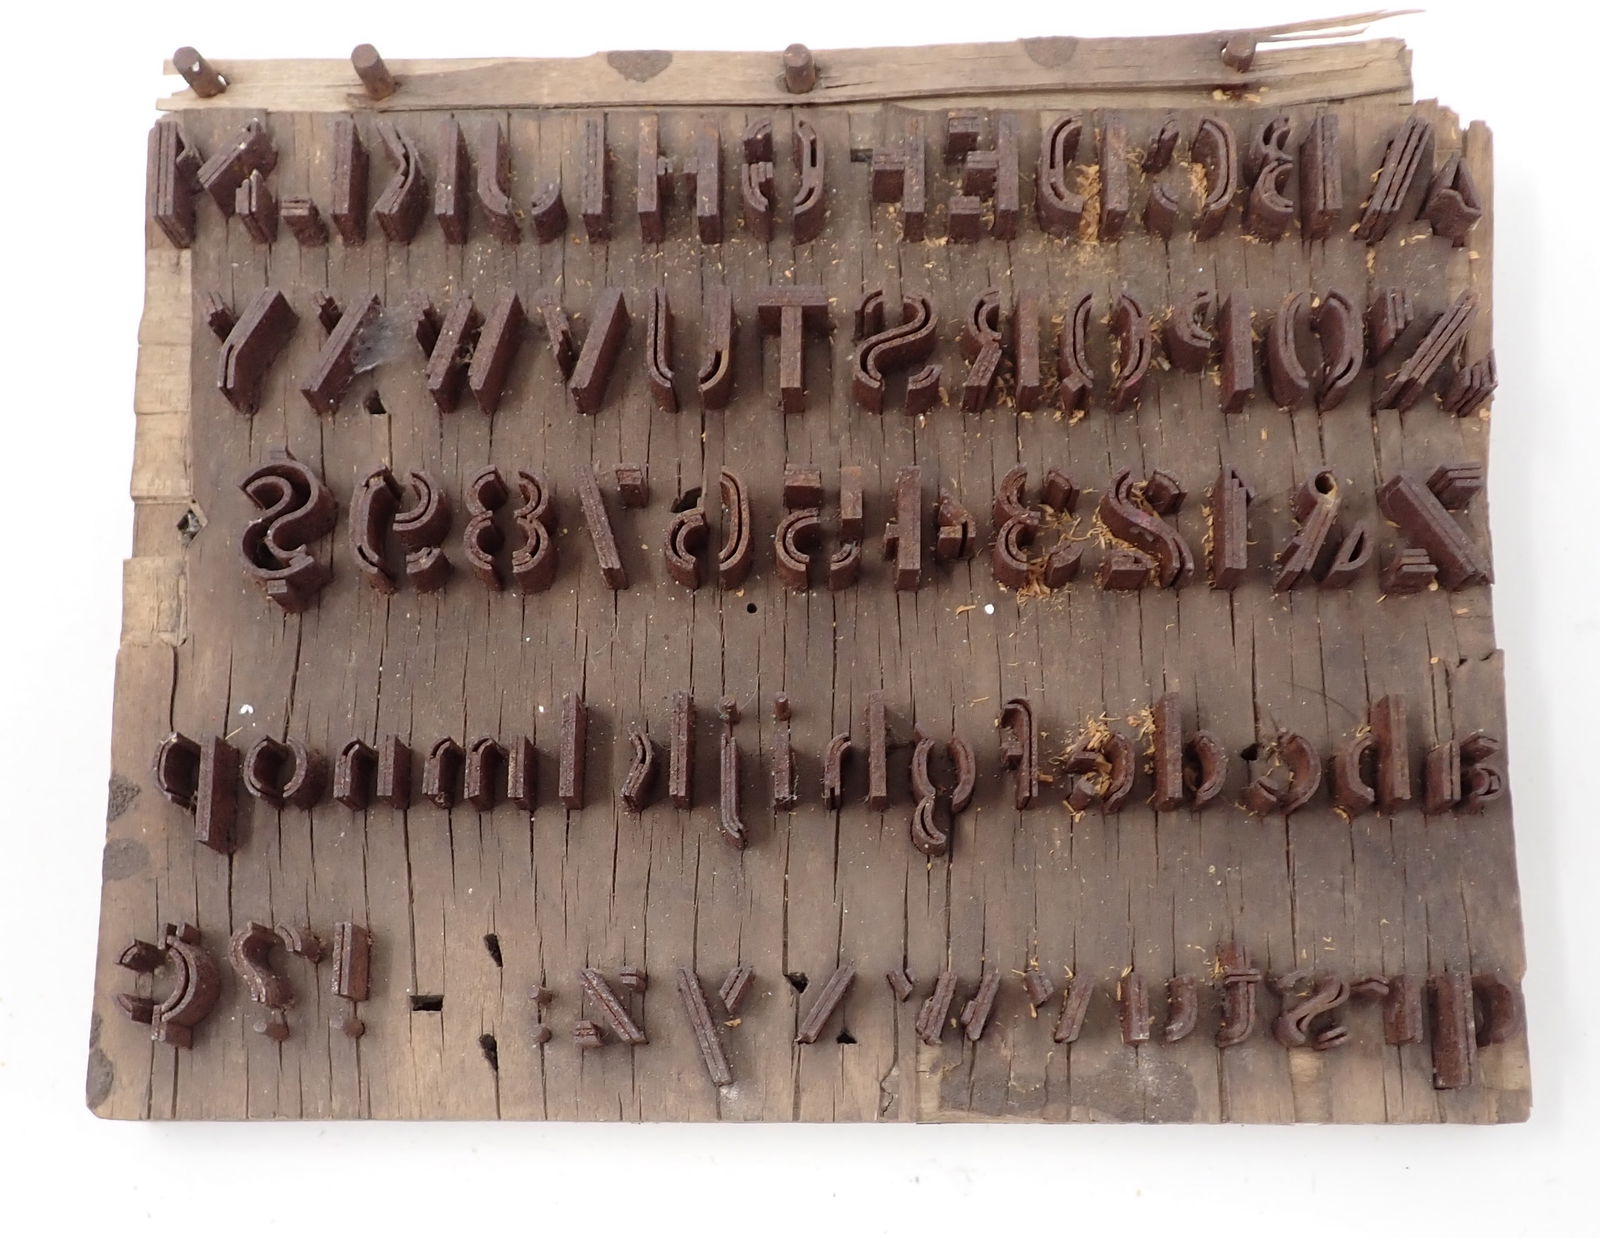 ABCDEFGHIJKLM
NOPQRSTUVWXY
Z&123456789$
abcdefghijklmnop
qrstuvwxyz:!?¢